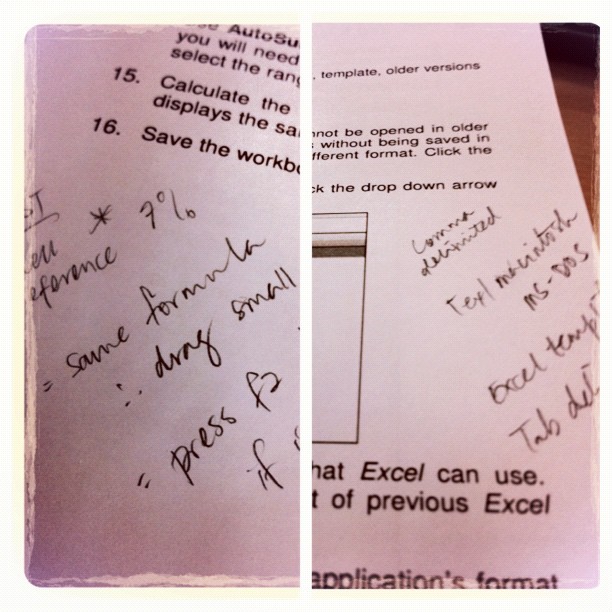 AutoSu
you will need
select the rang
15. Calculate the
displays the sa
16. Save the workbo
* 7%
eference
= same formula
∴ drag small
" press f2
if
, template, older versions
nnot be opened in older
s without being saved in
fferent format. Click the
ck the drop down arrow
Comma
delimited
Text macintosh
MS-DOS
Excel templ
Tab del
hat Excel can use.
t of previous Excel
application's format